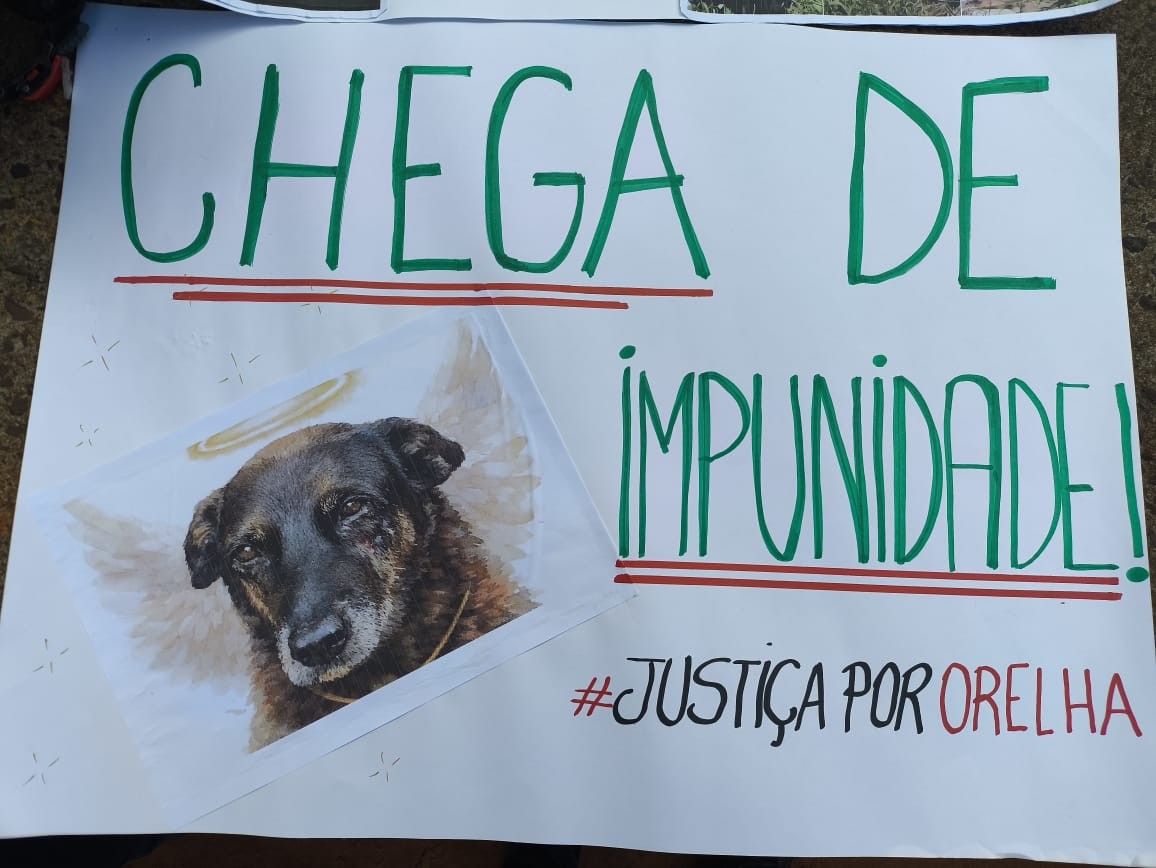 CHEGA DE
iMPUNiDADE!
#JUSTiÇA POR ORELHA